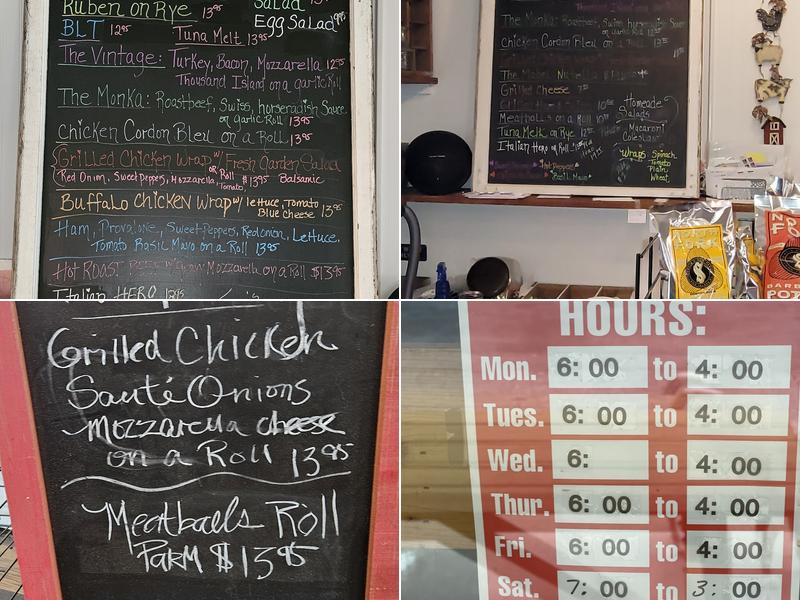 Ruben on Rye 13⁹⁵
Salad
BLT 12⁹⁵
Tuna Melt 13⁹⁵
Egg Salad
The Vintage: Turkey, Bacon, Mozzarella 12⁹⁵
Thousand Island on a garlic Roll
The Monka: Roastbeef, Swiss, horseradish Sauce
on garlic Roll 13⁹⁵
Chicken Cordon Bleu on a Roll 13⁹⁵
Grilled Chicken Wrap w/ Fresh Garden Salad
Red Onion, Sweet Peppers, Mozzarella or Roll $13⁹⁵ Balsamic
Tomato,
Buffalo Chicken Wrap w/ lettuce, Tomato
Blue Cheese 13⁹⁵
Ham, Provalone, Sweet-Peppers, Red onion, Lettuce,
Tomato Basil Mayo on a Roll 13⁹⁵
Hot Roast Beef Mozzarella on a Roll $13⁹⁵
Italian HERO 12⁹⁵
The Monka: Roastbeef, Swiss, horseradish Sauce
on garlic Roll 13⁹⁵
Chicken Cordon Bleu on a Roll
Grilled Cheese
Meatballs on a Roll
Tuna Melt on Rye
Italian Hero on Roll
Homeade
Salads
Macaroni
Coleslaw
Wraps Spinach
Tomato
Plain
Wheat
Basil Mayo
Grilled Chicken
Sauté Onions
Mozzarella cheese
on a Roll 13⁹⁵
Meatballs Roll
Parm $13⁹⁵
HOURS:
Mon. 6: 00 to 4: 00
Tues. 6: 00 to 4: 00
Wed. 6: to 4: 00
Thur. 6: 00 to 4: 00
Fri. 6: 00 to 4: 00
Sat. 7: 00 to 3: 00